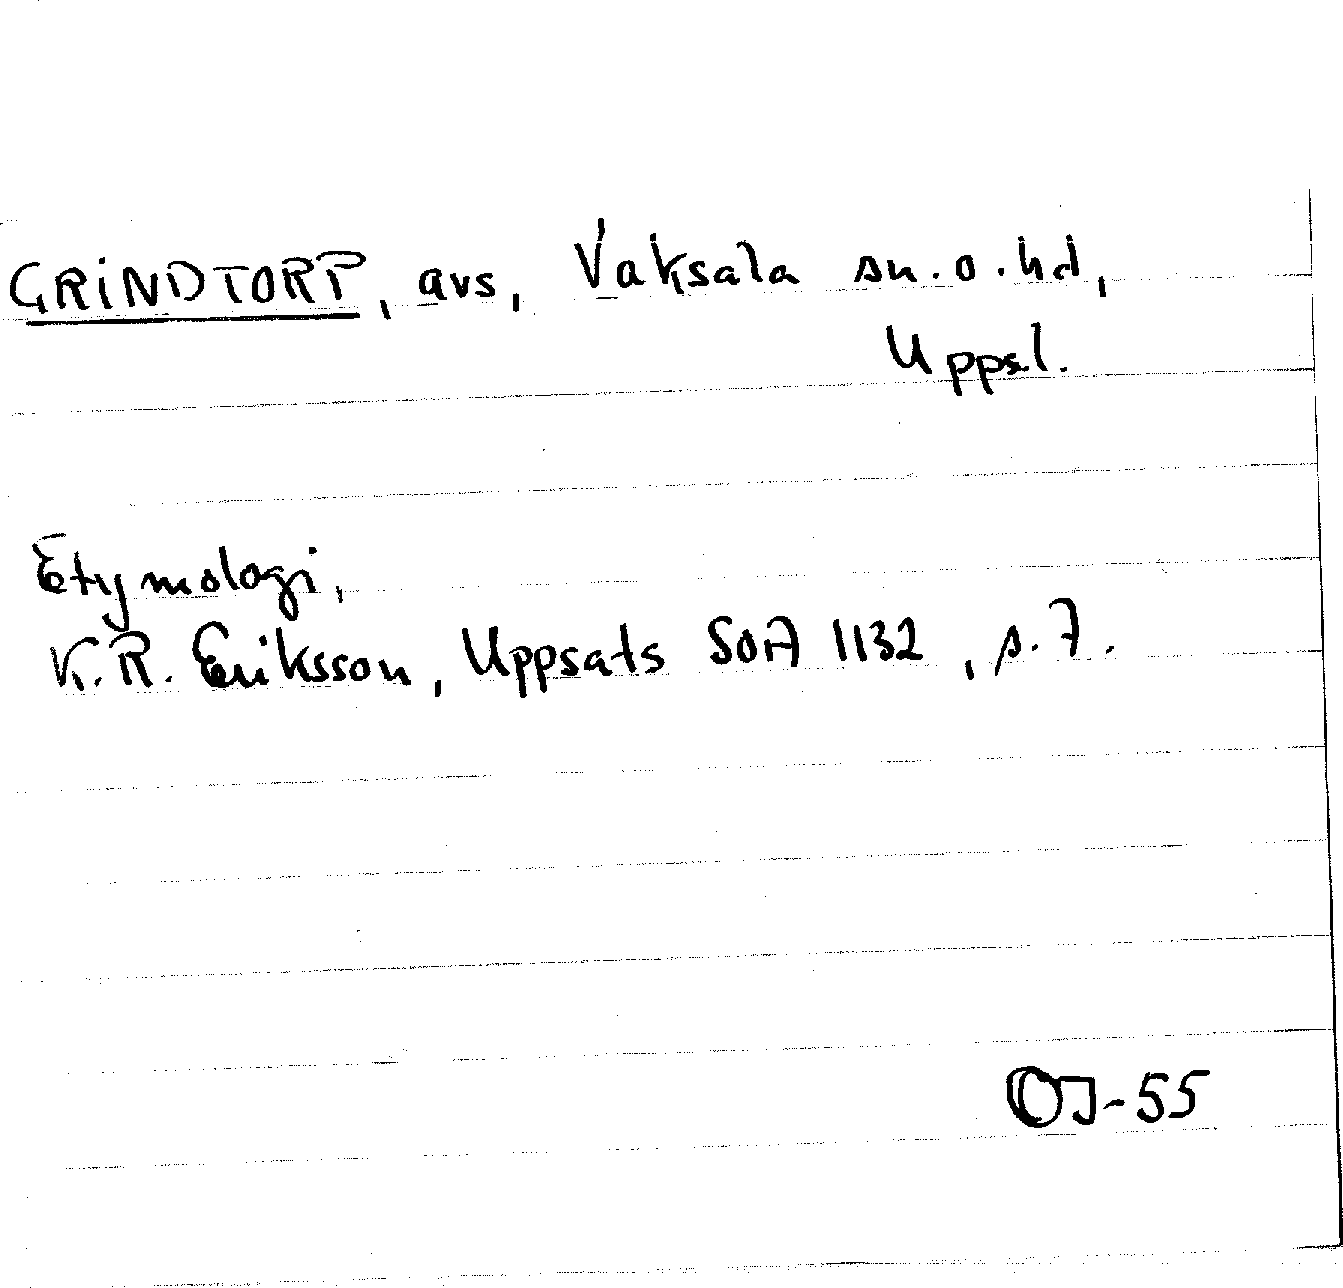 GRINDTORP, avs, Vaksala sn. o. hd,
Uppsl.
Etymologi,
K.R. Eriksson, Uppsats SOA 1132, s. 7.
OJ-55